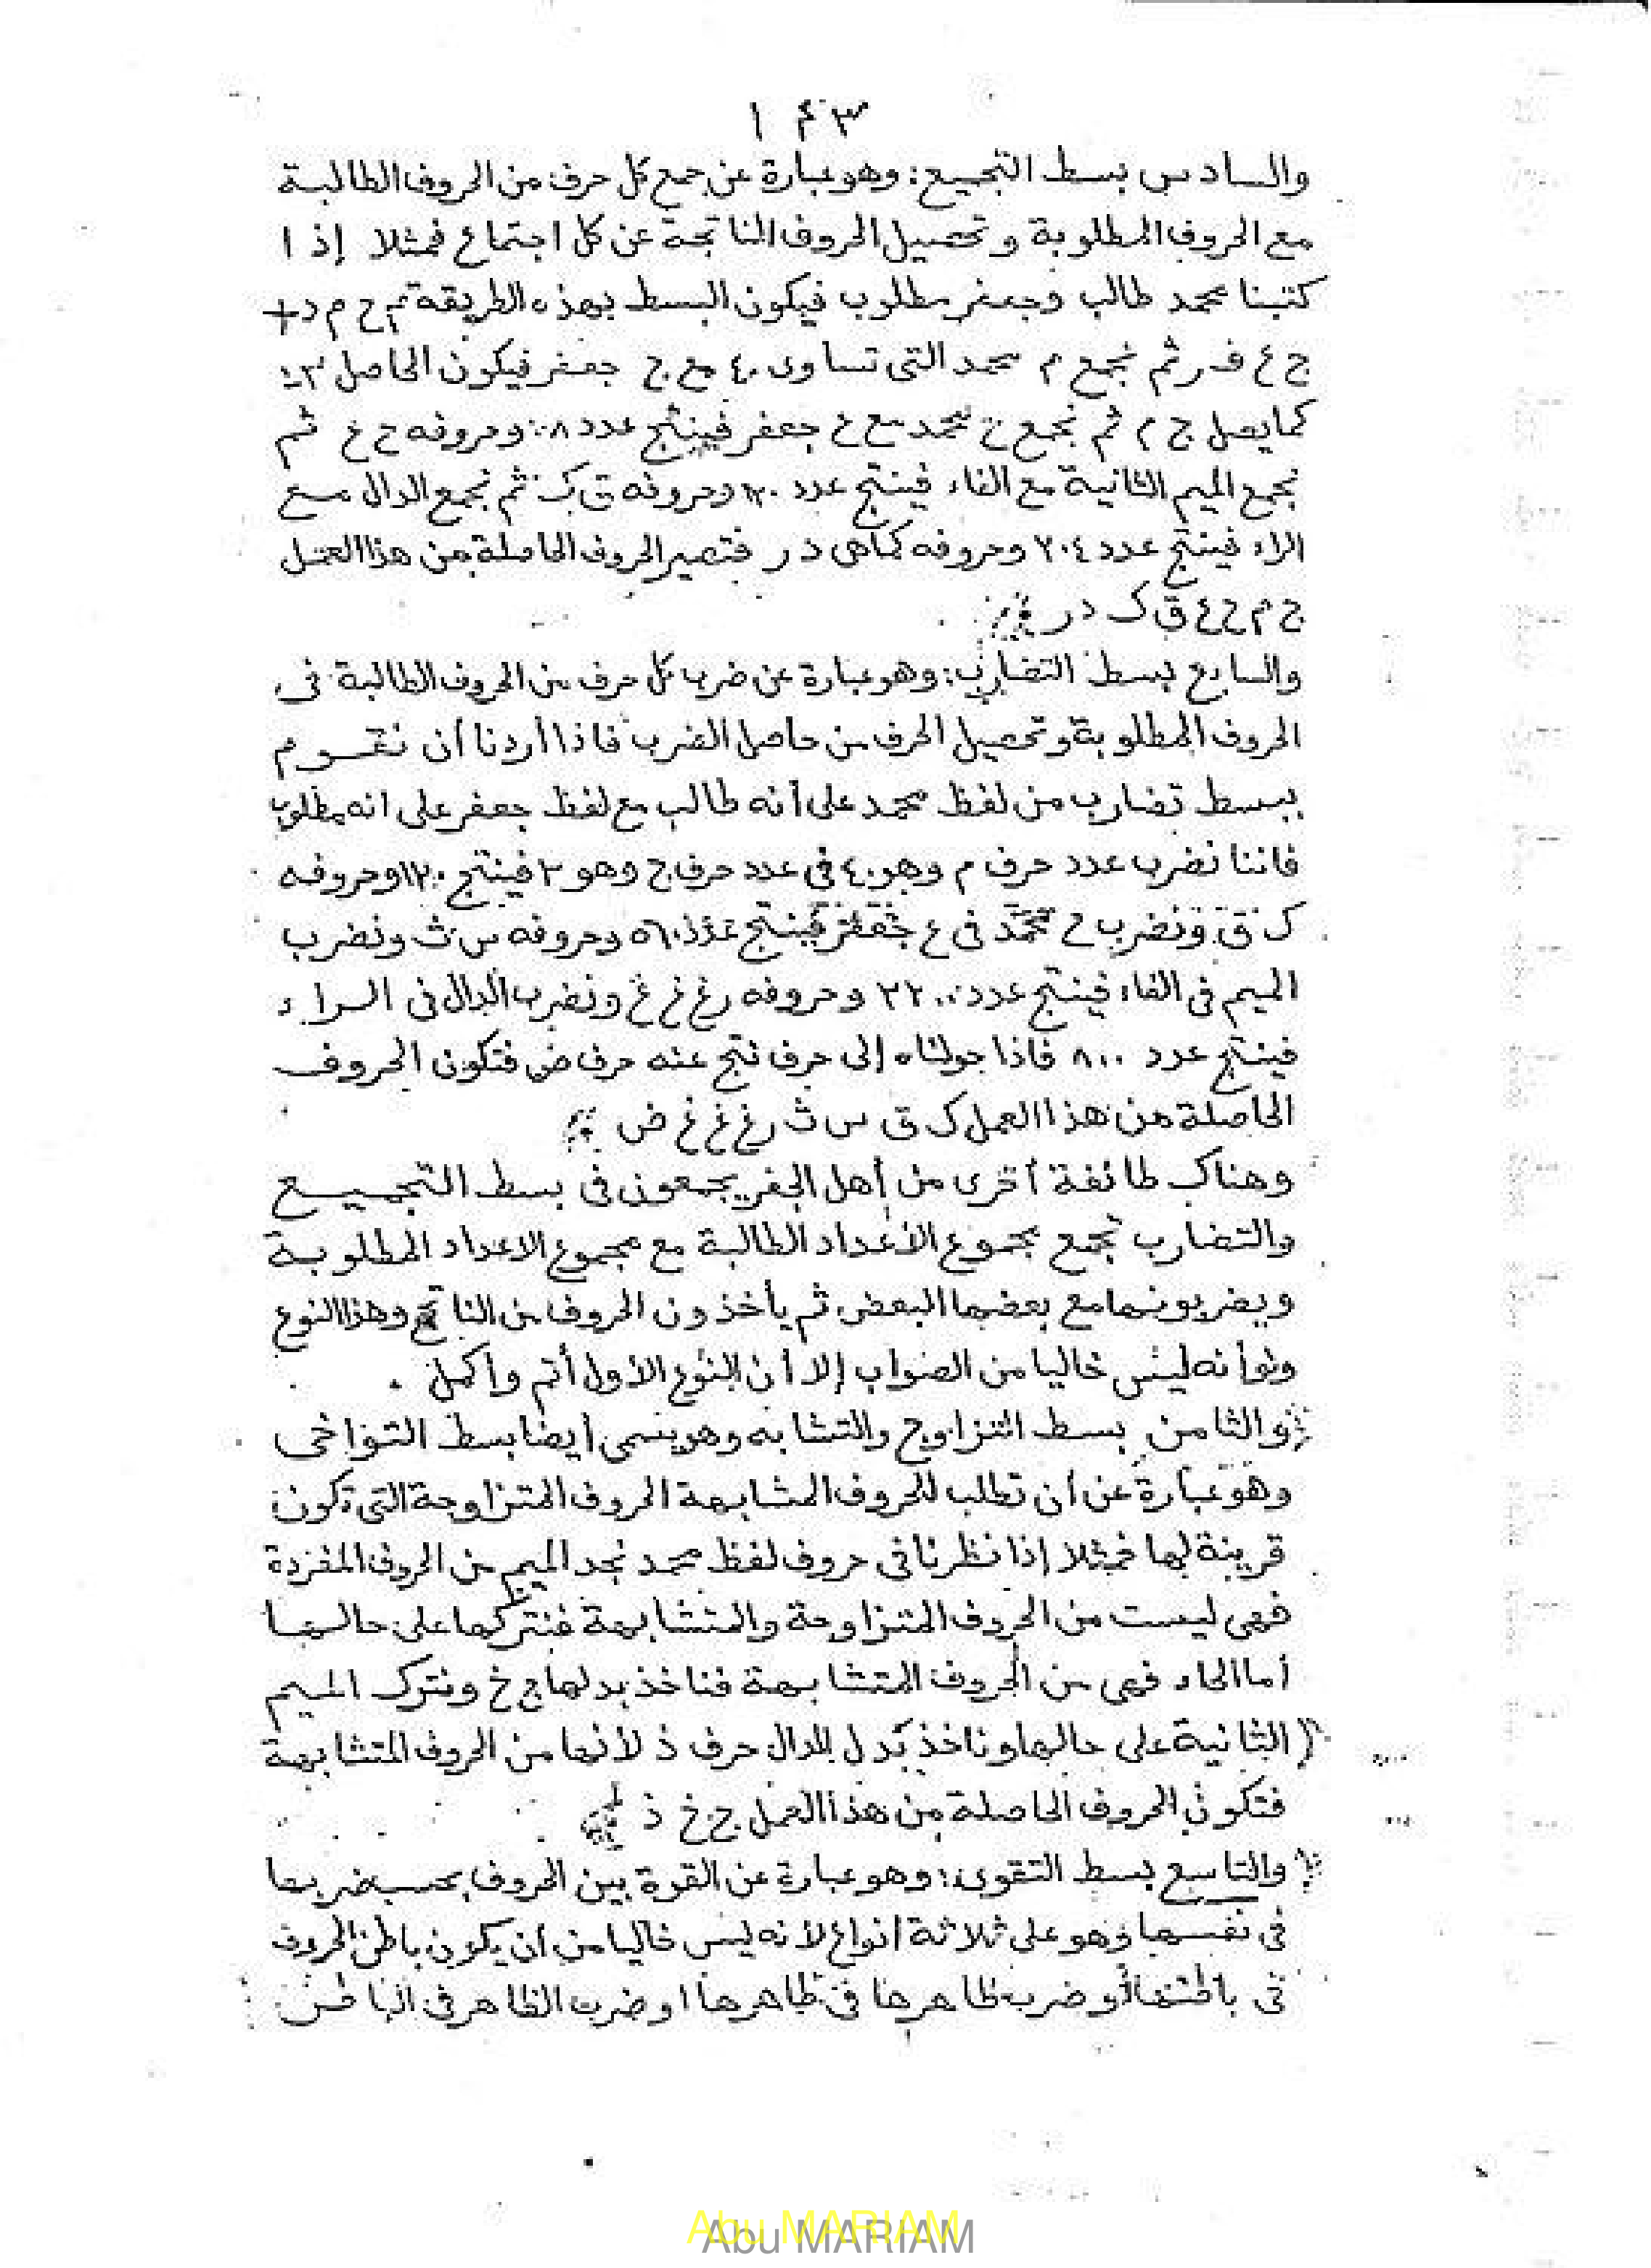 والسادس بسط التجميع : وهو عبارة عن جمع كل حرف من الحروف الطالبة
مع الحروف المطلوبة وتحصيل الحروف الناتجة عن كل اجتماع فمثلا إذا
كتبنا محمد طالب وجعفر مطلوب فيكون البسط بهذه الطريقة م ح م د +
ج ع ف ر ثم نجمع م محمد التى تساوى ٤٠ مع ج جعفر فيكون الحاصل ٤٣
كما يصل ج م ثم نجمع ح محمد مع ع جعفر فينتج عدد وحروفه ح ع ثم
نجمع الميم الثانية مع الفاء فينتج عدد ١٢٠ وحروفه ق ك ثم نجمع الدال مع
الراء فينتج عدد ٢٠٤ وحروفه كما هى د ر فتصير الحروف الحاصلة من هذا العمل
ج م ح ع ق ك د ر
والسابع بسط التضارب : وهو عبارة عن ضرب كل حرف من الحروف الطالبة فى
الحروف المطلوبة وتحصيل الحرف من حاصل الضرب فاذا أردنا أن نقوم
ببسط تضارب من لفظ محمد على أنه طالب مع لفظ جعفر على انه مطلوب
فاننا نضرب عدد حرف م وهو ٤٠ فى عدد حرف ج وهو ٣ فينتج ١٢٠ وحروفه
ك ق ونضرب ح محمد فى ع جعفر فينتج عدد ٥٦٠ وحروفه س ث ونضرب
الميم فى الفاء فينتج عدد ٣٢٠٠ وحروفه ر غ غ غ ونضرب الدال فى الراء
فينتج عدد ٨٠٠ فاذا حولناه إلى حرف نتج عنه حرف ض فتكون الحروف
الحاصلة من هذا العمل ك ق س ث ر غ غ غ ض
وهناك طائفة أخرى من أهل الجفر يجمعون فى بسط التجميع
والتضارب تجمع مجموع الأعداد الطالبة مع مجموع الاعداد المطلوبة
ويضربونها مع بعضها البعض ثم يأخذون الحروف من الناتج وهذا النوع
ولو أنه ليس خاليا من الصواب إلا أن النوع الأول أتم وأكمل .
والثامن بسط التزاوج والتشابه وهو يسمى أيضا بسط التواخى
وهو عبارة عن أن تطلب للحروف المشابهة الحروف المتزاوجة التى تكون
قرينة لها فمثلا إذا نظرنا فى حروف لفظ محمد نجد الميم من الحروف المفردة
فهى ليست من الحروف المتزاوجة والمتشابهة فنتركها على حالها
أما الحاء فهى من الحروف المتشابهة فناخذ بدلها ج خ ونترك الميم
الثانية على حالها وناخذ بدل الدال حرف ذ لأنها من الحروف المتشابهة
فتكون الحروف الحاصلة من هذا العمل ج خ ذ
والتاسع بسط التقوى : وهو عبارة عن القوة بين الحروف بحسب ضربها
فى نفسها وهو على ثلاثة انواع لأنه ليس خاليا من أن يكون باطن الحروف
فى باطنها أو ضرب ظاهرها فى ظاهرها او ضرب الظاهر فى الباطن
Abu MARIAM